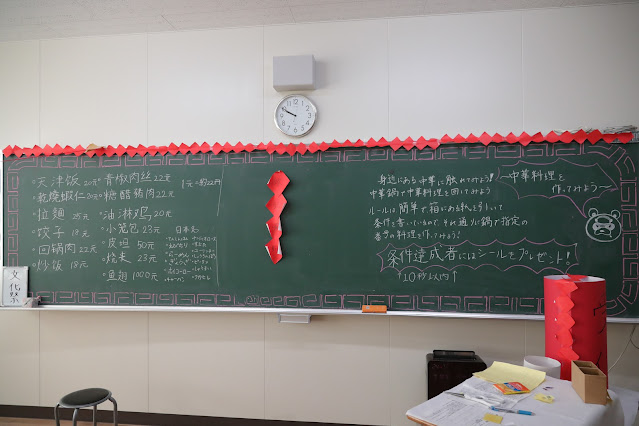 ・天津饭 20元
・青椒肉丝 22元
・乾焼蝦仁 20元
・糖醋猪肉 22元
・拉麺 25元
・油淋鸡 20元
・饺子 19元
・小笼包 23元
・回鍋肉 22元
・皮坦 50元
・炒饭 18元
・焼売 23元
・魚翅 1000元
1元=約22円
日本名
身近にある中華に触れてみよう!!
中華鍋で中華料理を回してみよう
ルールは簡単で箱にある札を引いて
条件が書いているので、その通りに鍋で指定の
番号の料理を作ってみよう!
条件達成者にはシールをプレゼント!
↑10秒以内↑
〜中華料理を
作ってみよう〜
文化祭